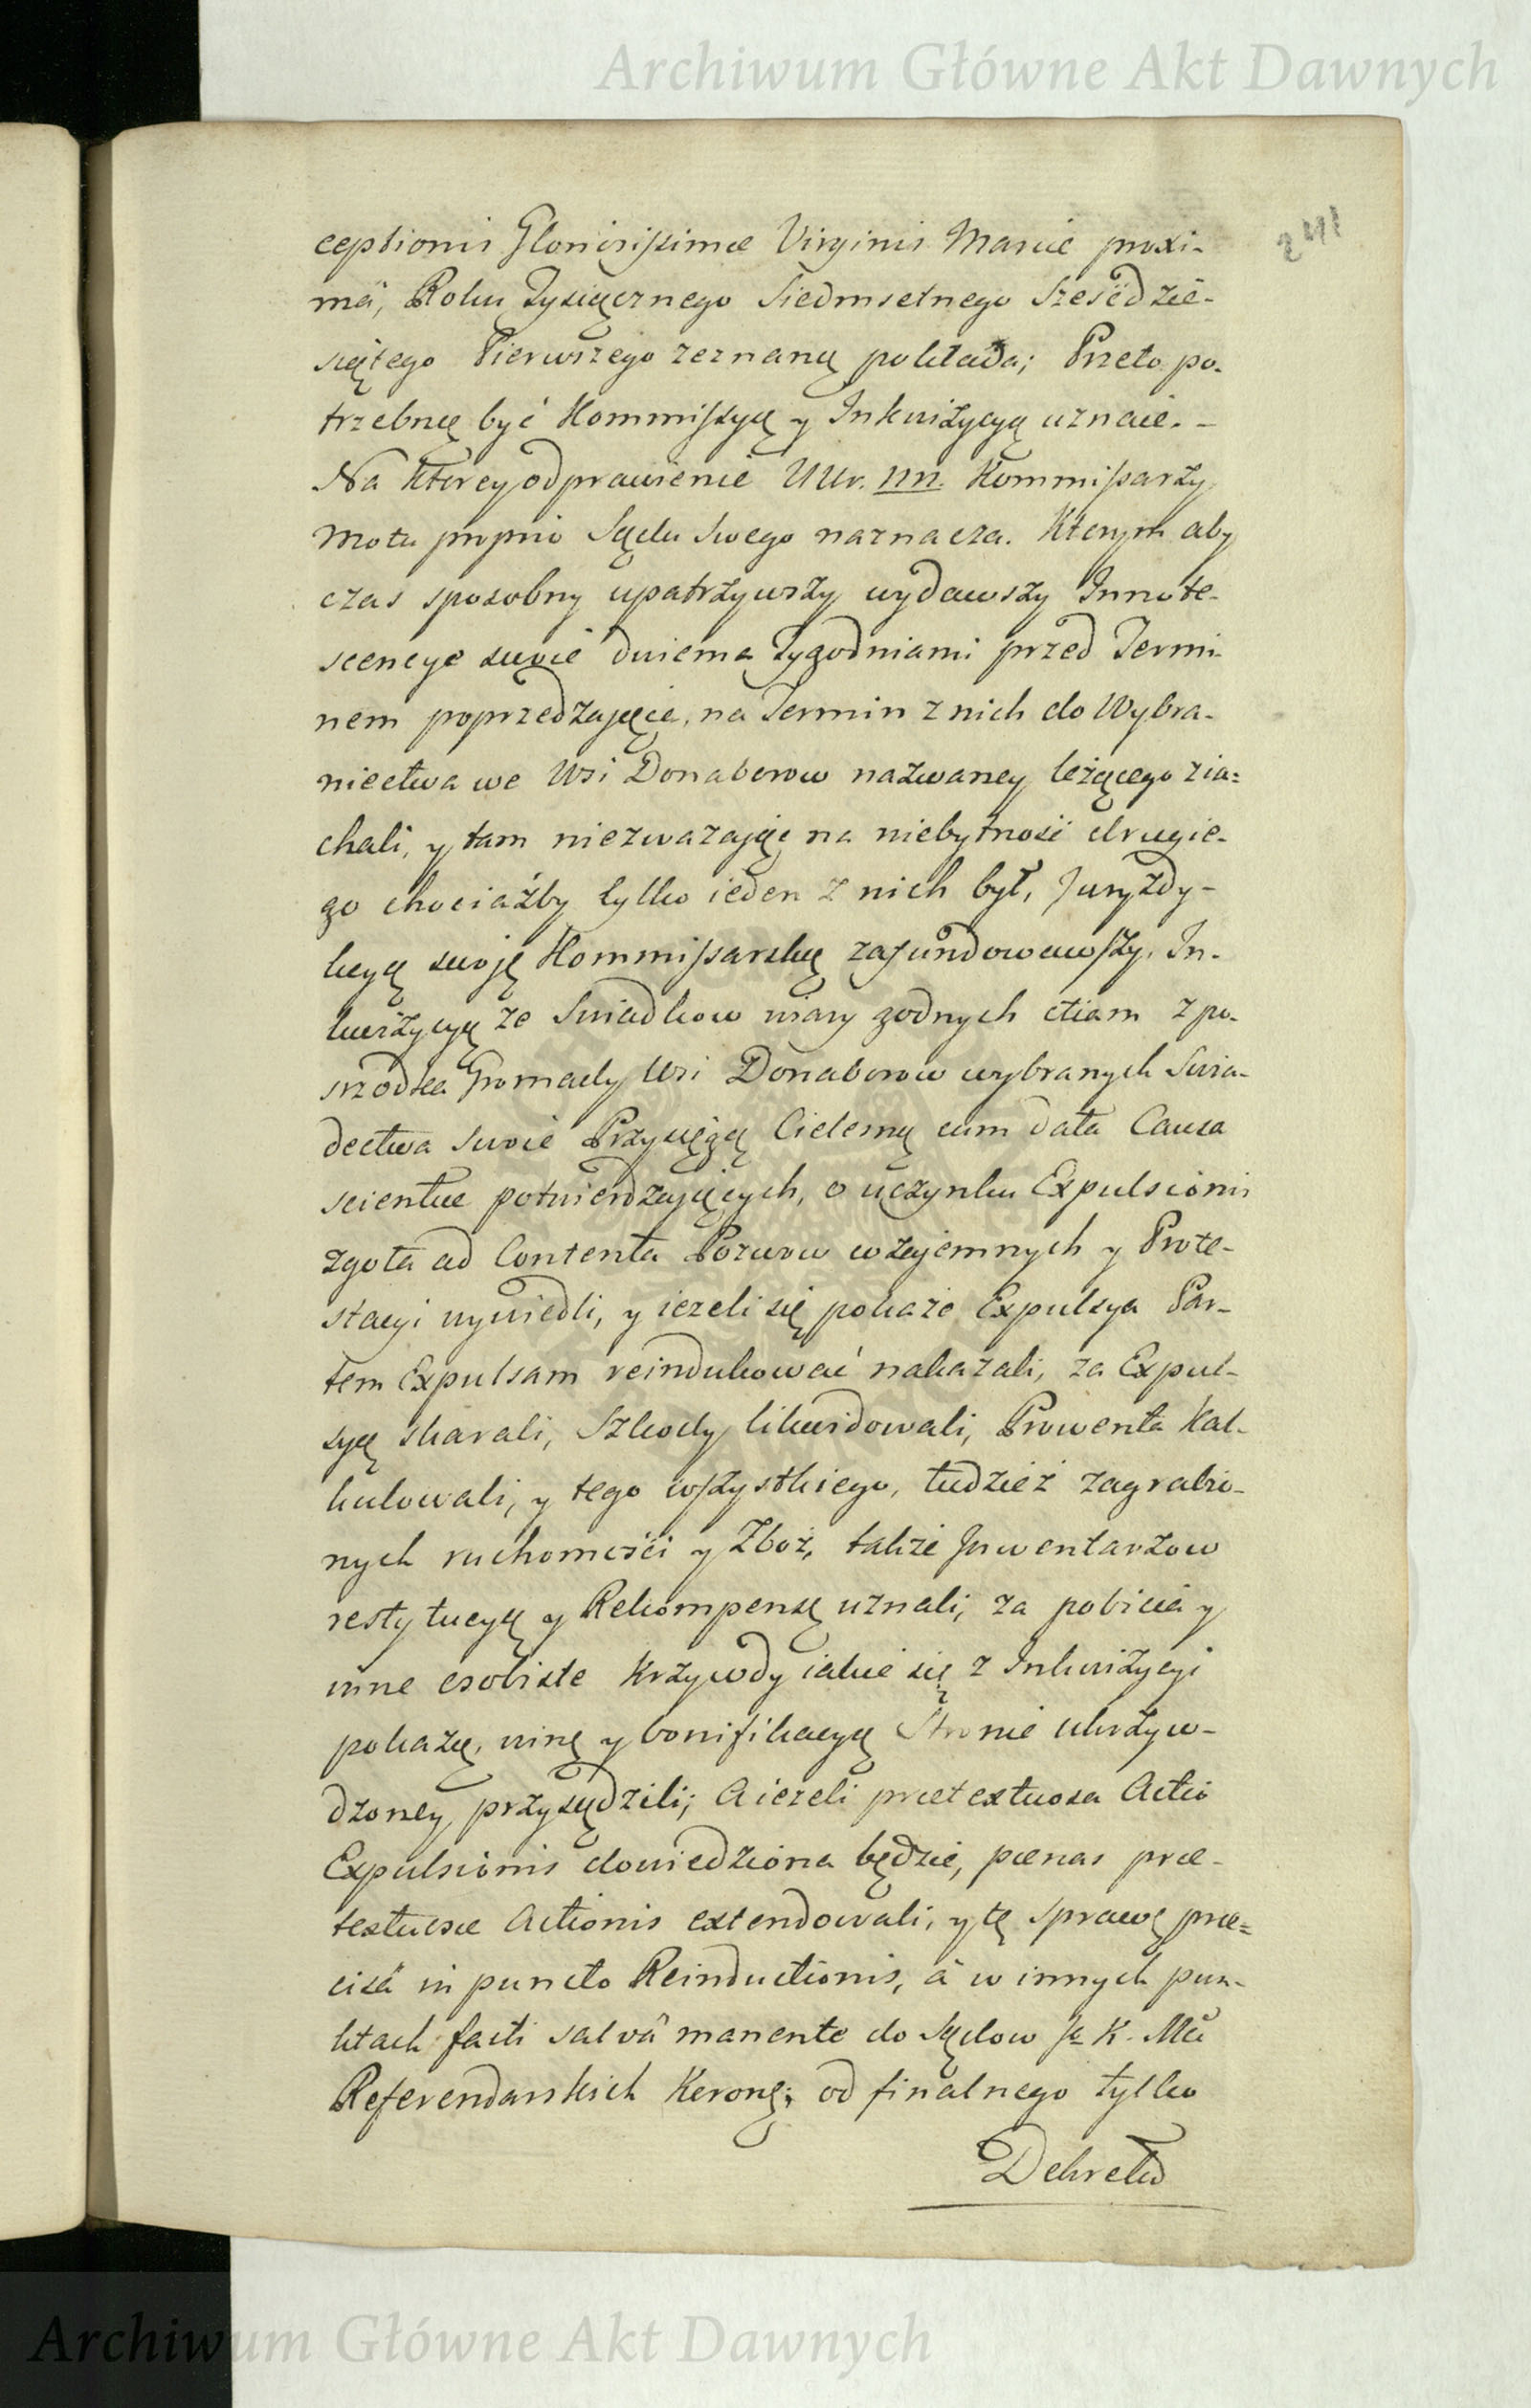 Archiwum Główne Akt Dawnych
ceptionis Glorioſiſsimæ Virginis Mariæ proxi-
mâ, Roku Tysiącznego Siedmsetnego Sześćdzie-
siątego Pierwszego zeznaną pokłada; Przeto po-
trzebną być Kommiſsyą y Inkwizycyą uznaie. -
Na ktorey odprawienie UUr. nn. Kommiſsarzy
motu proprio Sądu Swego naznacza. Ktorym aby
czas sposobny upatrzywszy wydawszy Innote-
scencye swoie dwiema Tygodniami przed Termi-
nem poprzedzaiące, na Termin z nich do Wybra-
niectwa we Wsi Donaborow nazwaney leżącego zia-
chali, y tam niezwazaiąc na niebytność drugie-
go chociażby tylko ieden z nich był, Juryzdy-
kcyą swoję Kommiſsarską zafundowawſzy, In-
kwizycyą ze Swiadkow wiary godnych etiam z po-
srzodka Gromady Wsi Donaborow wybranych Swia-
dectwa swoie Przysięgą Cielesną cum data Causa
scientiæ potwierdzaiących, o uczynku Expulsionis
zgoła ad Contenta Pozwow wzajemnych y Prote-
stacyi wywiedli, y iezeli się pokaże Expulsya Par-
tem Expulsam reindukować nakazali, za Expul-
syą skarali, Szkody likwidowali, Prowenta kal-
kulowali, y tego wſzystkiego, tudzież zagrabio-
nych ruchomości y Zboż, także Jnwentarzow
restytucyą y Rekompensę uznali, za pobicia y
inne osobiste Krzywdy iakie się z Inkwizycyi
pokażą, winę y bonifikacyą Stronie ukrzyw-
dzoney przysądzili; A iezeli prætextuosa Actio
Expulsionis dowiedziona będzie, pœnas præ-
textuosæ Actionis extendowali, y tę sprawę præ-
cisâ in puncto Reinductionis, â w innych pun-
ktach facti salvâ manente do Sądow J. K. Mci
Referendarskich Koronĕ; od finalnego tylko
Dekretu
Archiwum Główne Akt Dawnych